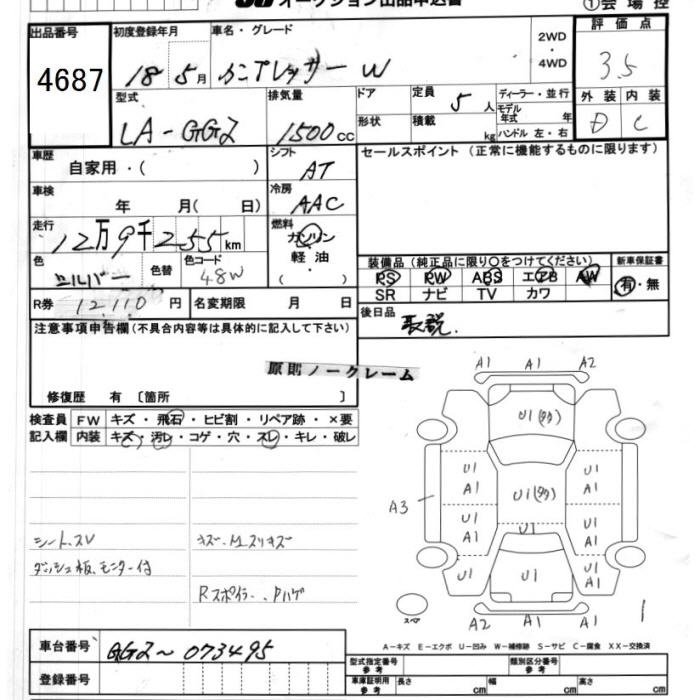 オークション出品申込書
①会場控
出品番号
4687
初度登録年月
18年 5月
車名・グレード
インプレッサー W
2WD
・
4WD
評価点
3.5
外装 内装
D C
型式
LA-GG2
排気量
1500cc
ドア
形状
定員 5人
積載 kg
ディーラー・並行
モデル年式 年
ハンドル 左・右
車歴
自家用・( )
シフト
AT
冷房
AAC
車検
年 月( 日)
走行
12万9千255km
燃料
ガソリン
軽油
・
色
シルバー
色替
色コード
48W
R券 12,110円
名変期限 月 日
セールスポイント (正常に機能するものに限ります)
装備品 (純正品に限り○をつけてください)
PS PW ABS エアB AW
SR ナビ TV カワ
新車保証書
有・無
後日品
取説.
注意事項申告欄(不具合内容等は具体的に記入して下さい)
原則ノークレーム
修復歴 有 〔箇所 〕
検査員
記入欄
FW キズ・飛石・ヒビ割・リペア跡・×要
内装 キズ・汚レ・コゲ・穴・スレ・キレ・破レ
シート、SV
ダッシュ板、モニター付
キズ、M.スリキズ
Rスポイラー、Pハゲ
A1 A1 A2
U1(タタ)
U1
A1
U1(タタ)
U1
A1
A3
U1
A1
U1
U1
A1
U1
U1
U1
A1
スペア
A2 A1 A1
A-キズ E-エクボ U-凹み W-補修跡 S-サビ C-腐食 XX-交換済
車台番号
GG2~073495
登録番号
型式指定番号
参考
類別区分番号
参考
車庫証明用
参考
長さ cm
幅 cm
高さ cm